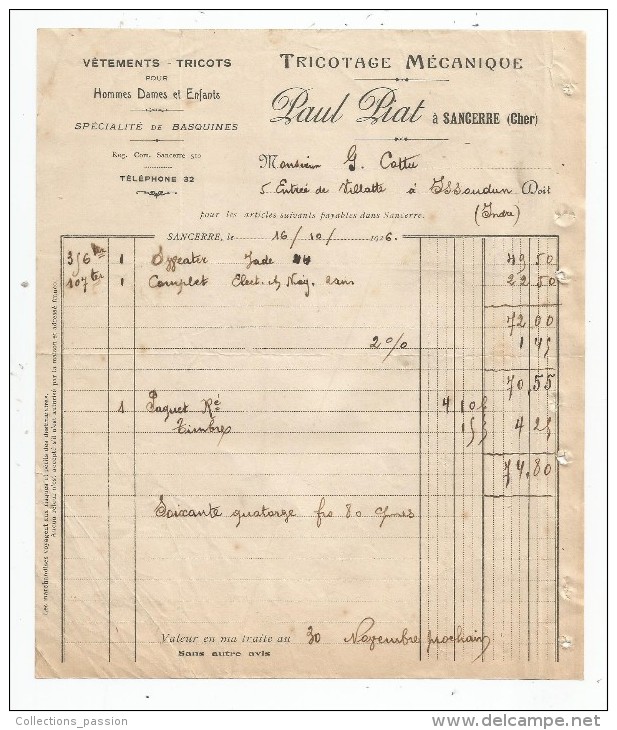 VÊTEMENTS - TRICOTS
POUR
Hommes Dames et Enfants
SPÉCIALITÉ DE BASQUINES
Reg. Com. Sancerre 510
TÉLÉPHONE 32
TRICOTAGE MÉCANIQUE
Paul Piat à SANCERRE (Cher)
Monsieur G. Cattu
5 Entrée de Villatte à Issoudun Doit
(Indre)
pour les articles suivants payables dans Sancerre.
SANCERRE, le 16/10/1926.
356 ter 1 Sweater Jade 44 49 50
107 ter 1 Complet Elect. 2 ans 22 50
72 00
2 % 1 45
70,55
1 Paquet Ré 4 10
Timbres 15 4 25
74,80
Soixante quatorze frs 80 cmes
Valeur en ma traite au 30 Novembre prochain
Sans autre avis
Les marchandises voyagent aux risques et périls des destinataires.
Aucun retour n'est accepté s'il n'est autorisé par la maison et adressé franco.
Collections_passion
www.delcampe.net